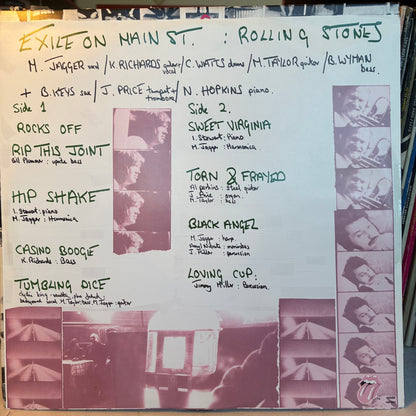 EXILE ON MAIN ST. : ROLLING STONES
M. JAGGER vocal / K. RICHARDS guitar vocal / C. WATTS drums / M. TAYLOR guitar / B. WYMAN bass.
+ B. KEYS sax / J. PRICE trumpet trombone / N. HOPKINS piano.
Side 1
ROCKS OFF
RIP THIS JOINT
Bill Plummer : upright bass
HIP SHAKE
I. Stewart : piano
M. Jagger : Harmonica
CASINO BOOGIE
K. Richards : Bass
TUMBLING DICE
background vocal M. Taylor : bass, M. Jagger : guitar
Side 2.
SWEET VIRGINIA
I. Stewart : Piano
M. Jagger : Harmonica
TORN & FRAYED
Al perkins : Steel guitar
J. Price : organ.
M. Taylor : bass
BLACK ANGEL
M. Jagger : harp
: marimbas
J. Miller : percussion
LOVING CUP :
Jimmy Miller : Percussion.